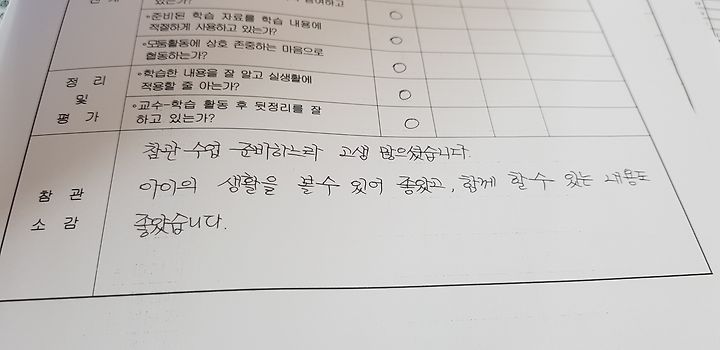 있는가?
◦준비된 학습 자료를 학습 내용에
적절하게 사용하고 있는가?
◦모둠활동에 상호 존중하는 마음으로
협동하는가?
정 리
및
평 가
◦학습한 내용을 잘 알고 실생활에
적용할 줄 아는가?
◦교수-학습 활동 후 뒷정리를 잘
하고 있는가?
참 관
소 감
참관 수업 준비하느라 고생 많으셨습니다.
아이의 생활을 볼수 있어 좋았고, 함께 할수 있는 내용도
좋았습니다.